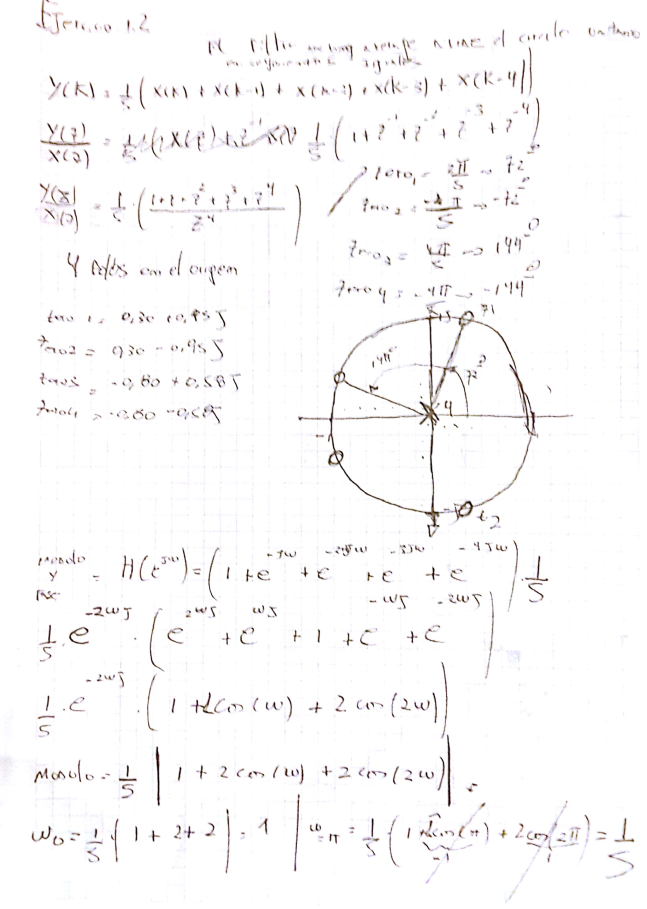 Ejercicio 1.2
El filtro moving average divide el circulo unitario
en segmentos iguales
Y(k) = 1/5 (X(k) + X(k-1) + X(k-2) + X(k-3) + X(k-4))
Y(z)/X(z) = 1/5 (1 + z^-1 + z^-2 + z^-3 + z^-4)
Zero1 = 2π/5 → 72°
Y(z)/X(z) = 1/5 · (1+z+z^2+z^3+z^4 / z^4)
Zero2 = -2π/5 → -72°
Zero3 = 4π/5 → 144°
4 Polos en el origen
Zero4 = -4π/5 → -144°
zero 1 = 0,30 + 0,95J
zero2 = 0,30 - 0,95J
zero3 = -0,80 + 0,58J
zero4 = -0,80 - 0,58J
z1
144°
72°
4
-1
z2
modulo y fase = H(e^Jw) = (1 + e^-Jw + e^-2Jw + e^-3Jw + e^-4Jw) · 1/5
1/5 · e^-2wJ · (e^2wJ + e^wJ + 1 + e^-wJ + e^-2wJ)
1/5 · e^-2wJ · (1 + 2cos(w) + 2 cos(2w))
Modulo = 1/5 | 1 + 2 cos(w) + 2 cos(2w) |
w0 = 1/5 | 1 + 2 + 2 | = 1 | wπ = 1/5 (1 + 2cos(π) + 2cos(2π)) = 1/5
-1 1